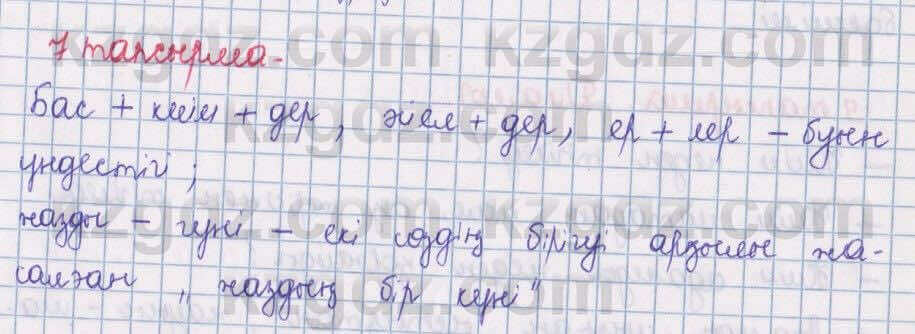 7 тапсырма -
Бас + киім + дер, әйел + дер, ер + лер - буын
үндестігі;
жазды - гүні - екі сөздің бірігуі арқылы жа-
салған „жаздың бір күні"